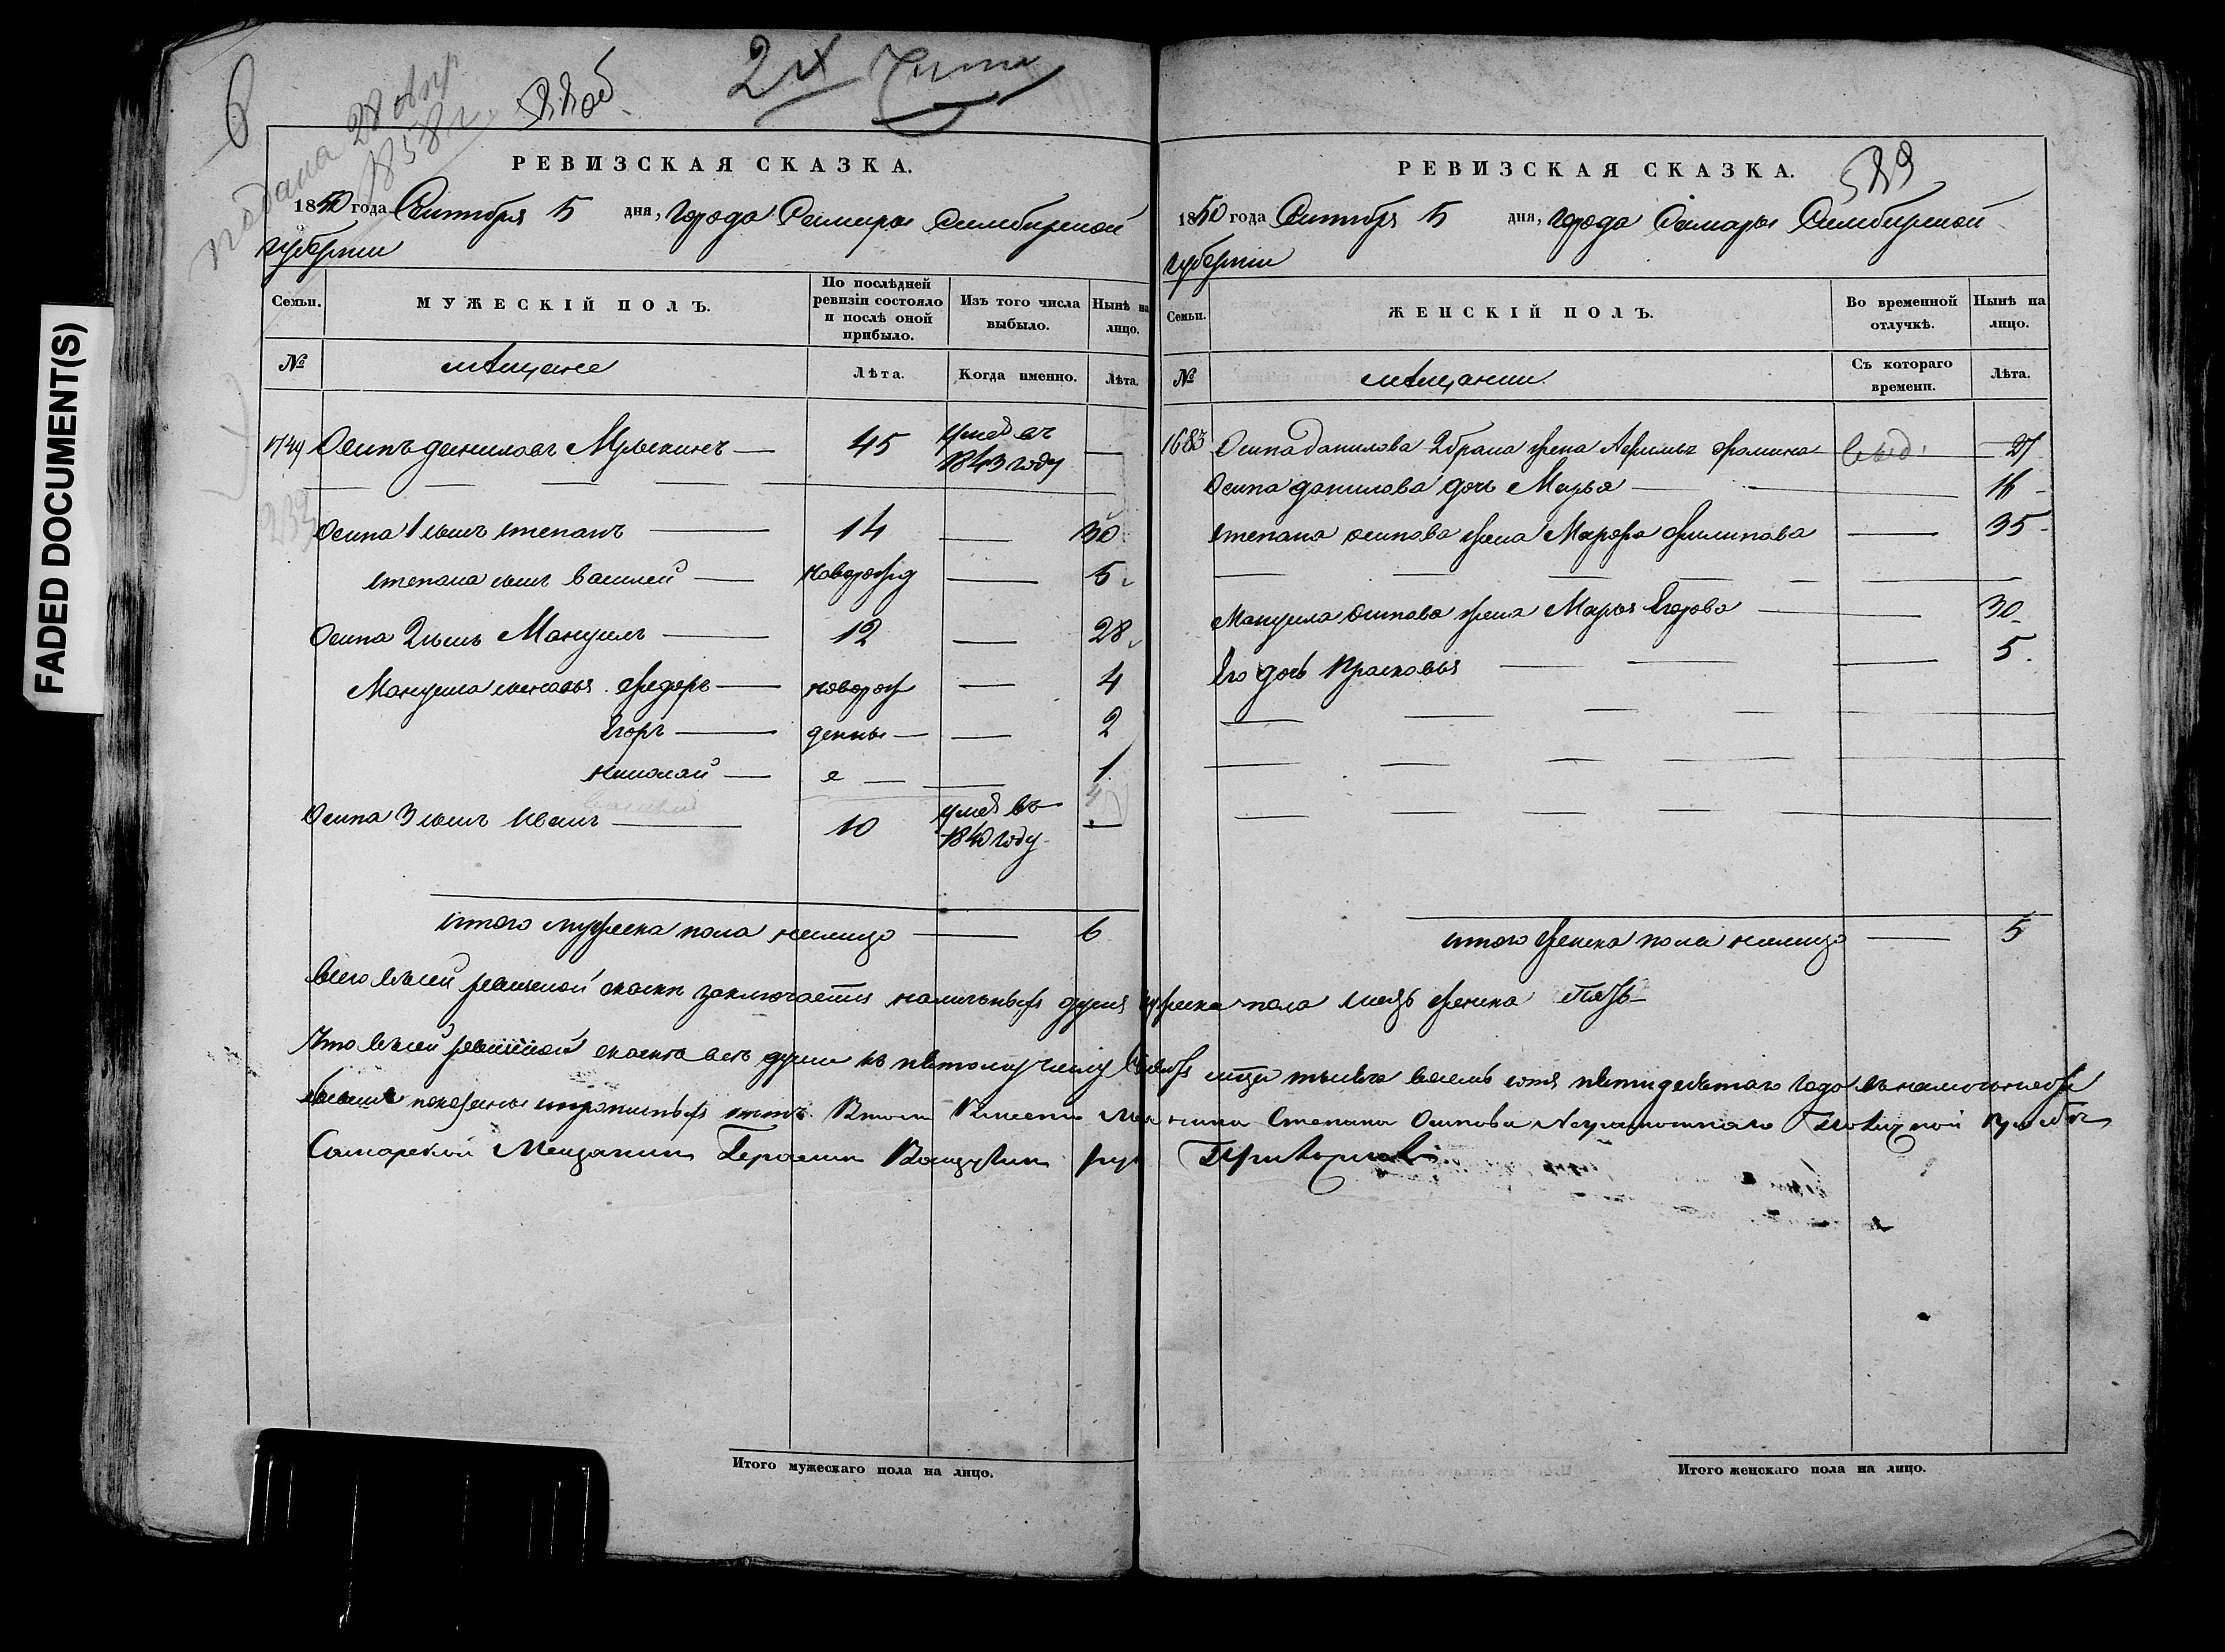 6
подана 28 апр
1858 г.
588 об
2й Гил
FADED DOCUMENT(S)
РЕВИЗСКАЯ СКАЗКА.
1850 года Сентября 5 дня, города Самары Симбирской
губернии
Семьи.
МУЖЕСКІЙ ПОЛЪ.
По послѣдней ревизіи состояло и послѣ оной прибыло.
Изъ того числа выбыло.
Нынѣ на лицо.
№
мѣщане
Лѣта.
Когда именно.
Лѣта.
1749 Осипъ даниловъ 45 умеръ въ 1843 году —
233
Осипа 1 сынъ степанъ — 14 — 30
степана сынъ василей — новорожд — 5
Осипа 2 сынъ Мануилъ — 12 — 28
Мануила сыновья федоръ — новорож — 4
Егоръ — денны — — 2
николай — е — — 1
Осипа 3 сынъ Иванъ — 10 умеръ въ 1840 году —
итого мужеска пола налицо — 6
РЕВИЗСКАЯ СКАЗКА.
589
1850 года Сентября 5 дня, города Самары Симбирской
губернии
Семьи.
ЖЕНСКІЙ ПОЛЪ.
Во временной отлучкѣ.
Нынѣ на лицо.
№
мѣщанки
Съ котораго времени.
Лѣта.
1683 Осипа данилова 2 брака жена фомина
Осипа данилова дочь Марья — 16
степана осипова жена Марфа филипова — 35
Мануила осипова жена Марья Егорова — 30
Его дочь Прасковья — 5
итого женска пола налицо — 5
всего въ сей ревиской сказки заключается наличныхъ душъ мужеска пола шесть женска пять
Что въ сей ревиской сказке все души къ пятому числу сентября месяца тысяча восемь сотъ пятидесятаго года въ наличности
показаны и пропущеныхъ нетъ Въ томъ вместо мещанина Степана Осипова неграмотнаго по ево личной прозбе
Самарской Мещанин Герасим руку Приложилъ
Итого мужескаго пола на лицо.
Итого женскаго пола на лицо.